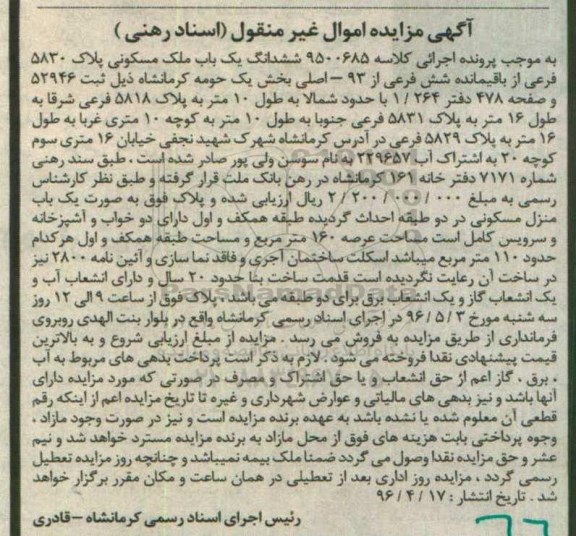 آگهی مزایده اموال غیر منقول (اسناد رهنی)
به موجب پرونده اجرائی کلاسه ۹۵۰۰۶۸۵ ششدانگ یک باب ملک مسکونی پلاک ۵۸۳۰
فرعی از باقیمانده شش فرعی از ۹۳ – اصلی بخش یک حومه کرمانشاه ذیل ثبت ۵۲۹۴۶
و صفحه ۴۷۸ دفتر ۲۶۴ / ۱ با حدود شمالا به طول ۱۰ متر به پلاک ۵۸۱۸ فرعی شرقا به
طول ۱۶ متر به پلاک ۵۸۳۱ فرعی جنوبا به طول ۱۰ متر به کوچه ۱۰ متری غربا به طول
۱۶ متر به پلاک ۵۸۲۹ فرعی در آدرس کرمانشاه شهرک شهید نجفی خیابان ۱۶ متری سوم
کوچه ۲۰ به اشتراک آب ۲۲۹۶۵۷ به نام سوسن ولی پور صادر شده است ، طبق سند رهنی
شماره ۷۱۷۱ دفتر خانه ۱۶۱ کرمانشاه در رهن بانک ملت قرار گرفته و طبق نظر کارشناس
رسمی به مبلغ ۰۰۰ / ۰۰۰ / ۲۰۰ / ۲ ریال ارزیابی شده و پلاک فوق به صورت یک باب
منزل مسکونی در دو طبقه احداث گردیده طبقه همکف و اول دارای دو خواب و آشپزخانه
و سرویس کامل است مساحت عرصه ۱۶۰ متر مربع و مساحت طبقه همکف و اول هر کدام
حدود ۱۱۰ متر مربع میباشد اسکلت ساختمان آجری و فاقد نما سازی و آئین نامه ۲۸۰۰ نیز
در ساخت آن رعایت نگردیده است قدمت ساخت بنا حدود ۲۰ سال و دارای انشعاب آب و
یک انشعاب گاز و یک انشعاب برق برای دو طبقه می باشد . پلاک فوق از ساعت ۹ الی ۱۲ روز
سه شنبه مورخ ۳ / ۵ / ۹۶ در اجرای اسناد رسمی کرمانشاه واقع در بلوار بنت الهدی روبروی
فرمانداری از طریق مزایده به فروش می رسد . مزایده از مبلغ ارزیابی شروع و به بالاترین
قیمت پیشنهادی نقدا فروخته می شود . لازم به ذکر است پرداخت بدهی های مربوط به آب
، برق ، گاز اعم از حق انشعاب و یا حق اشتراک و مصرف در صورتی که مورد مزایده دارای
آنها باشد و نیز بدهی های مالیاتی و عوارض شهرداری و غیره تا تاریخ مزایده اعم از اینکه رقم
قطعی آن معلوم شده یا نشده باشد به عهده برنده مزایده است و نیز در صورت وجود مازاد ،
وجوه پرداختی بابت هزینه های فوق از محل مازاد به برنده مزایده مسترد خواهد شد و نیم
عشر و حق مزایده نقدا وصول می گردد ضمنا ملک بیمه نمیباشد و چنانچه روز مزایده تعطیل
رسمی گردد ، مزایده روز اداری بعد از تعطیلی در همان ساعت و مکان مقرر برگزار خواهد
شد . تاریخ انتشار : ۱۷ / ۴ / ۹۶
رئیس اجرای اسناد رسمی کرمانشاه –قادری